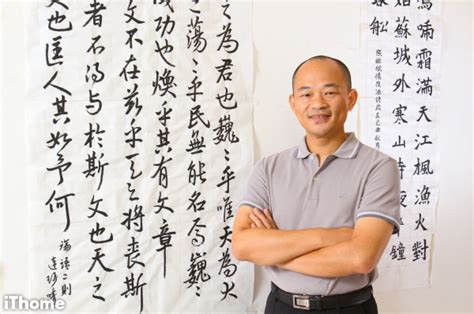 啼霜滿天江楓漁火對
姑蘇城外寒山寺夜鐘
船
之為君也巍〻乎唯天為大
之蕩〻乎民無能名焉巍〻
成功也煥乎其有文章
文不在茲乎天之將喪斯
者不得與於斯文也天之
文也匡人其如予何
論語二則
iThome